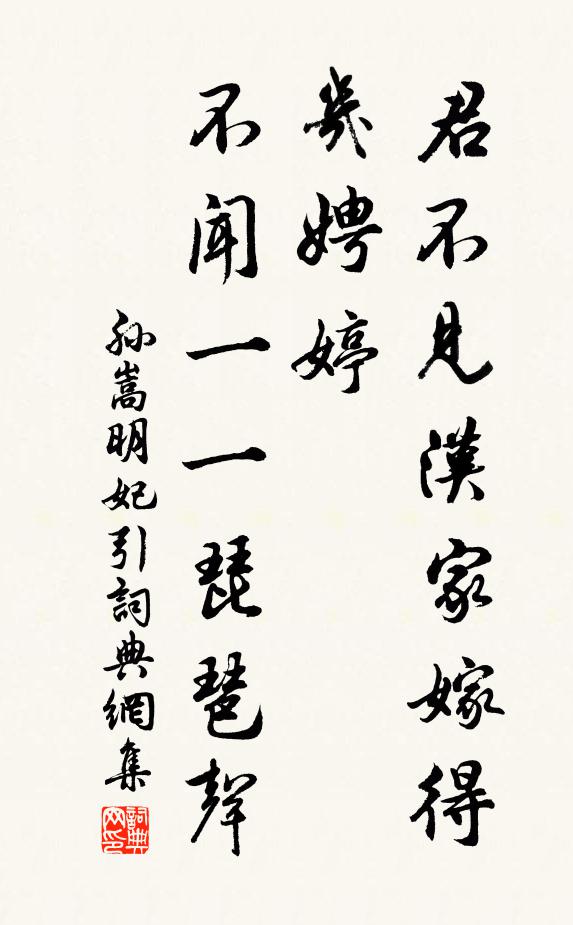 君不見漢家嫁得
幾娉婷
不聞一一琵琶聲
孫嵩明妃引詞典網集
詞典网印